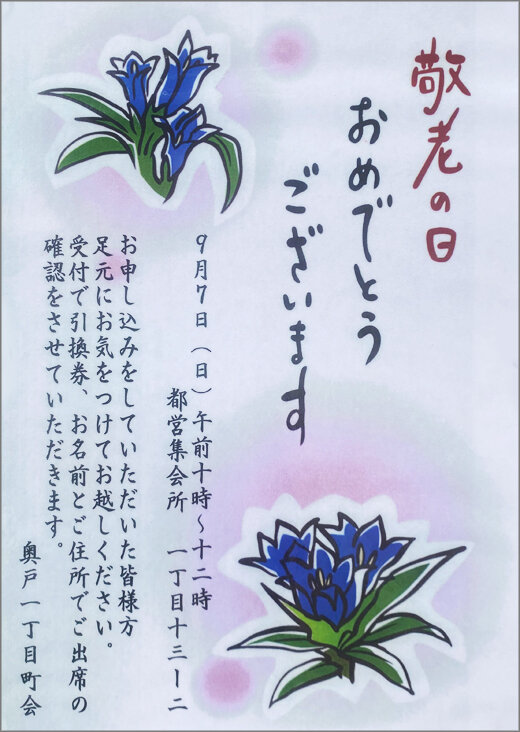 敬老の日
おめでとう
ございます
９月７日（日）午前十時～十二時
都営集会所　一丁目十三ー二
お申し込みをしていただいた皆様方
足元にお気をつけてお越しください。
受付で引換券、お名前とご住所でご出席の
確認をさせていただきます。
奥戸一丁目町会